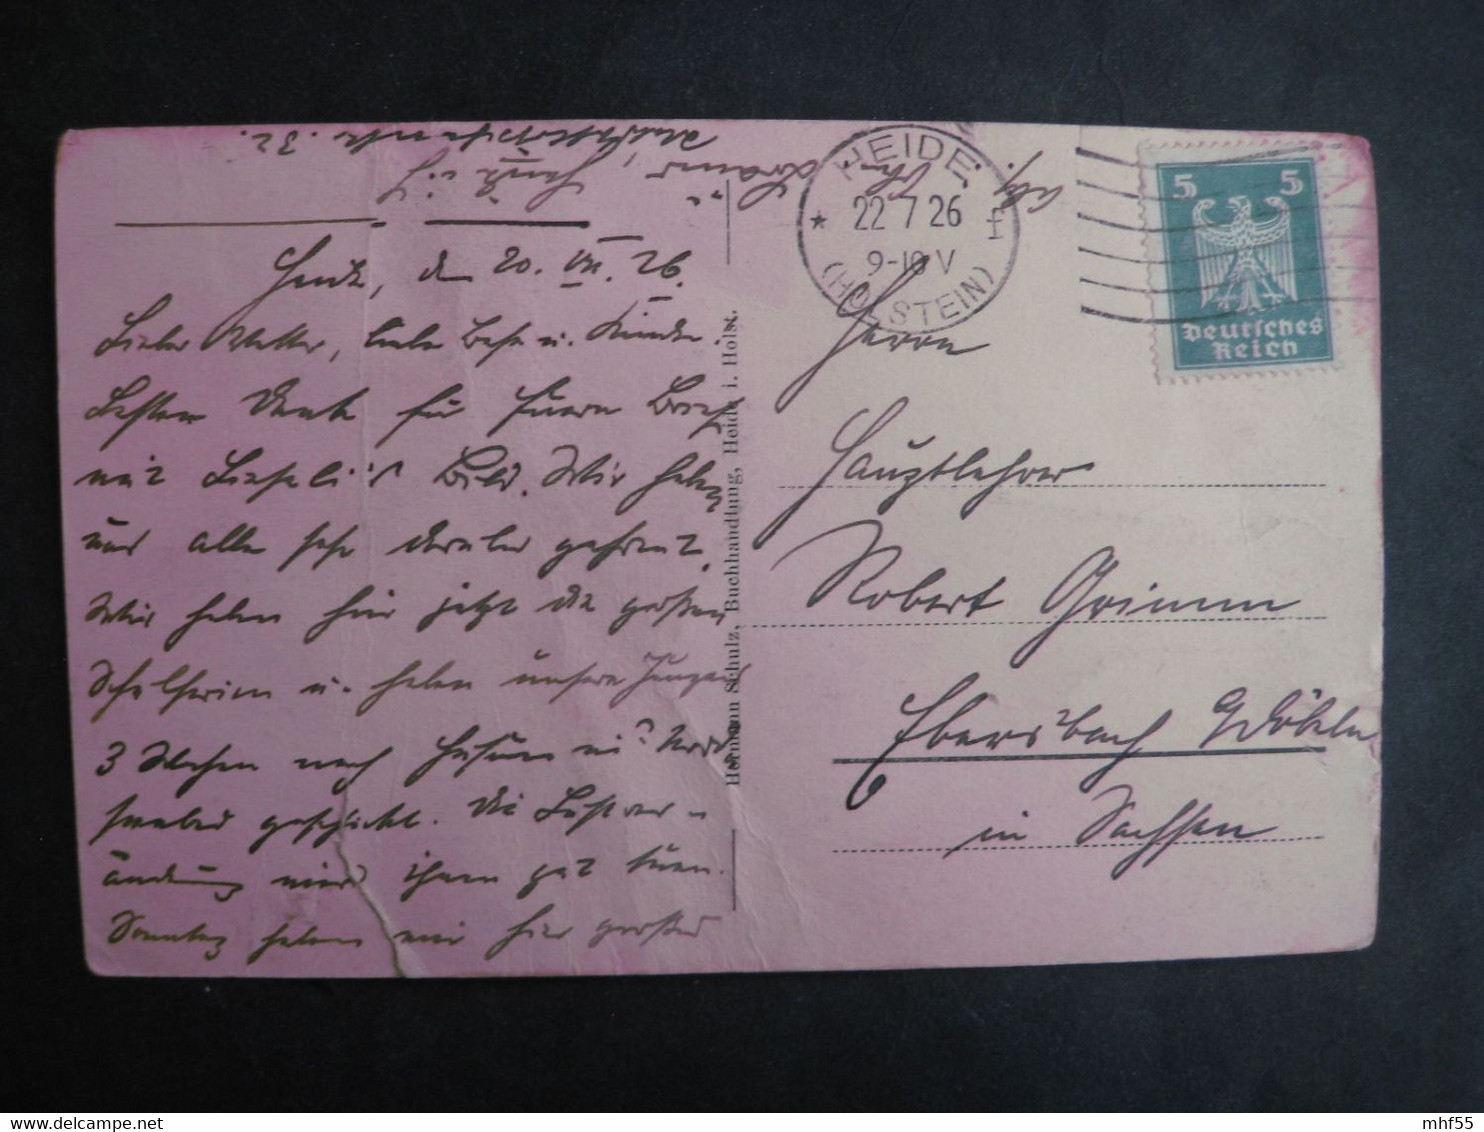 Heide, d. 20. VII. 26.
Lieber Vetter, liebe Base u. Kinder.
Besten Dank für Euern Brief
mit Lieselis Bild. Wir haben
uns alle sehr darüber gefreut.
Wir haben hier jetzt die großen
Schulferien u. haben unsere Jungens
3 Wochen nach Husum ins Nord-
seebad geschickt. Die Luftver-
änderung wird ihnen gut tuen.
Sonntag haben wir hier großes
Abs.
Heide i. H.
32.
Hermann Schulz, Buchhandlung, Heide i. Holst.
HEIDE
22 7 26
9-10 V
(HOLSTEIN)
5 5
Deutsches
Reich
Herrn
Hauptlehrer
Robert Grimm
Ebersbach b/Döbeln
in Sachsen
mhf55